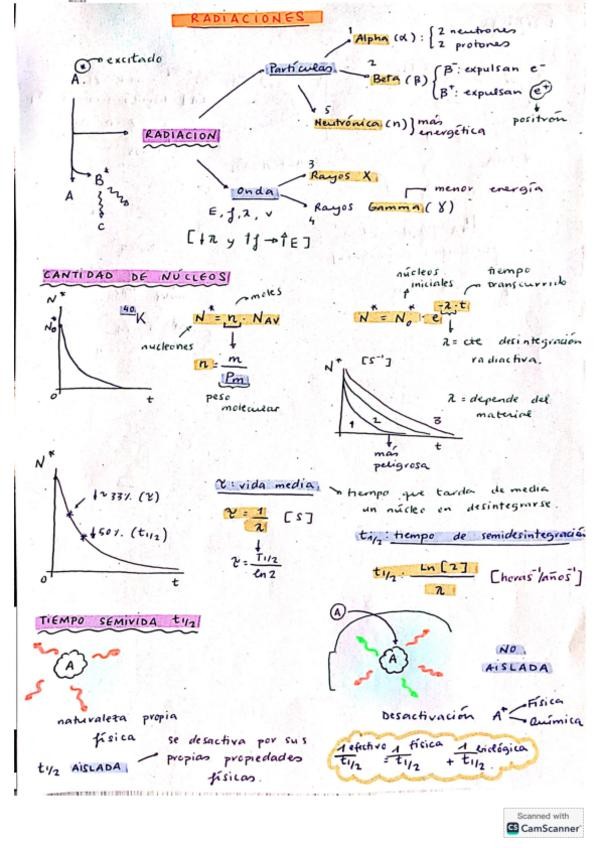 RADIACIONES
excitado
A
RADIACION
A
B*
C
Partículas
1 Alpha (α) : { 2 neutrones
2 protones
2 Beta (β) { B⁻: expulsan e⁻
B⁺: expulsan e⁺
positrón
5 Neutrónica (n) } más
energética
Onda
3 Rayos X
4 Rayos Gamma (γ)
menor energía
E, f, λ, v
[↓λ y ↑f → ↑E]
CANTIDAD DE NÚCLEOS
N*
N₀*
0
t
⁴⁰K
moles
N* = n · N_AV
nucleones
n = m / Pm
peso
molecular
núcleos
iniciales
tiempo
transcurrido
N* = N₀* · e^(-λ·t)
λ = cte desintegración
radiactiva.
[s⁻¹]
N*
1 2 3
t
más
peligrosa
λ = depende del
material
N*
↓ ~ 33% (τ)
↓ 50% (t1/2)
0
t
τ : vida media
tiempo que tarda de media
un núcleo en desintegrarse.
τ = 1/λ [s]
τ = T1/2 / ln 2
t1/2 : tiempo de semidesintegración
t1/2 = Ln [2] / λ [horas⁻¹/años⁻¹]
TIEMPO SEMIVIDA t1/2
A
naturaleza propia
física
t1/2 AISLADA
se desactiva por sus
propias propiedades
físicas.
A
A
NO
AISLADA
Desactivación A*
Física
Química
1 efectivo / t1/2 = 1 física / t1/2 + 1 biológica / t1/2.
Scanned with
CS CamScanner